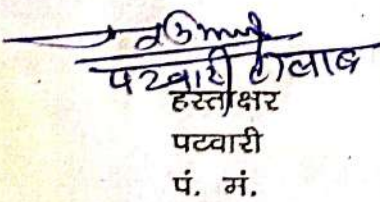 पटवारी
हस्ताक्षर
पटवारी
पं. मं.